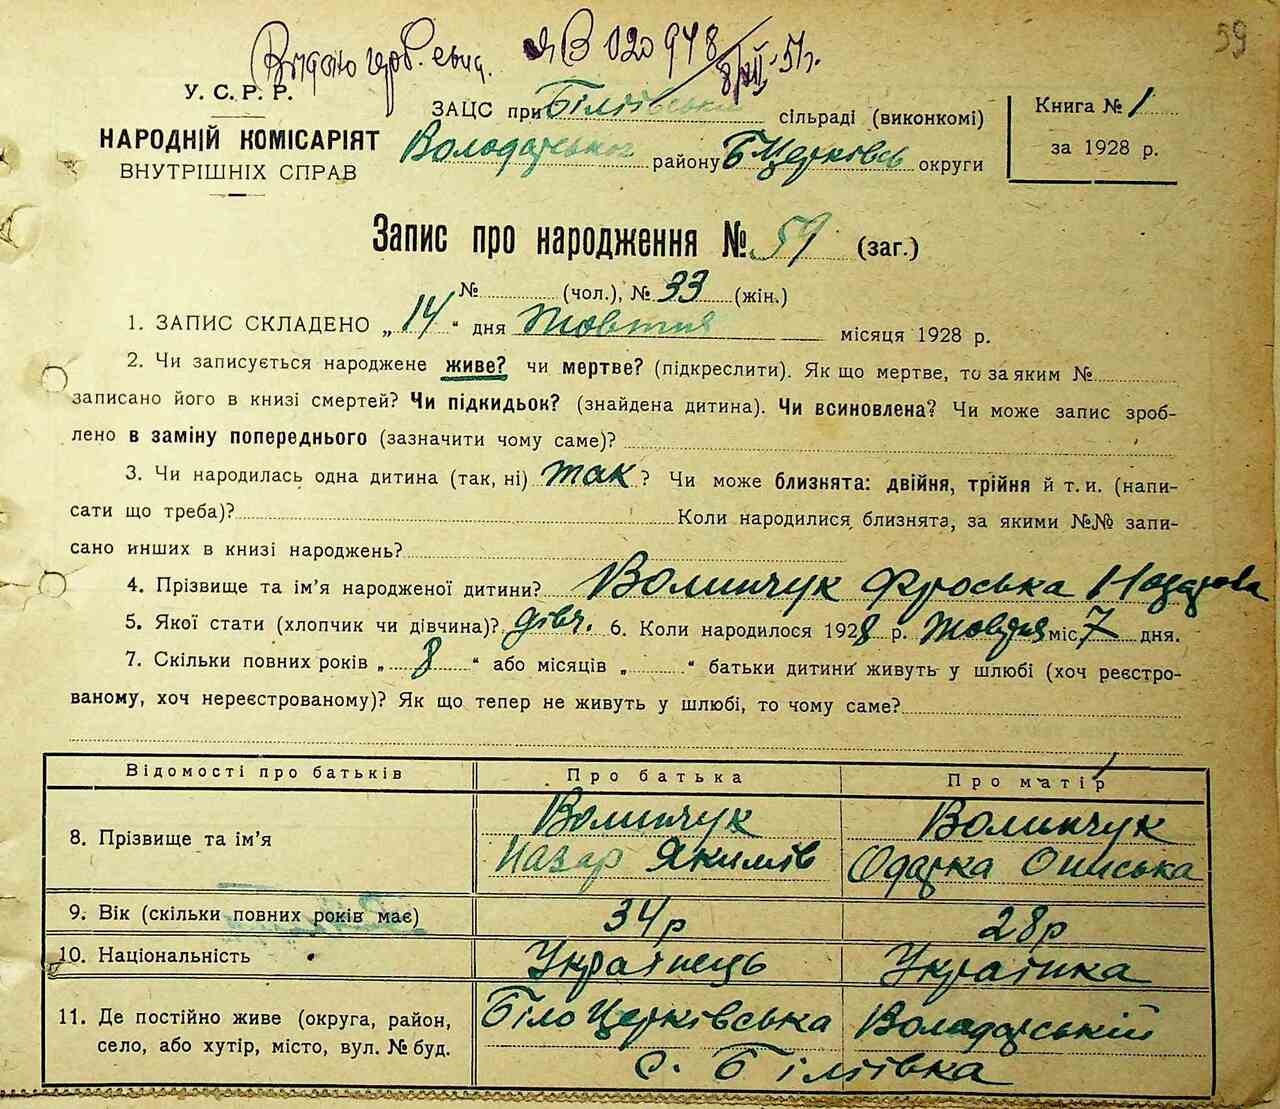 59
Видано герб. свид. ЯВ 020948
8/XII-51г.
У. С. Р. Р.
НАРОДНІЙ КОМІСАРІЯТ
ВНУТРІШНІХ СПРАВ
ЗАЦС при Біліївській сільраді (виконкомі)
Володарського району БЦерківськ округи
Книга № 1
за 1928 р.
Запис про народження № 59 (заг.)
№ (чол.), № 33 (жін.)
1. ЗАПИС СКЛАДЕНО „14“ дня Жовтня місяця 1928 р.
2. Чи записується народжене живе? чи мертве? (підкреслити). Як що мертве, то за яким №
записано його в книзі смертей? Чи підкидьок? (знайдена дитина). Чи всиновлена? Чи може запис зроб-
лено в заміну попереднього (зазначити чому саме)?
3. Чи народилась одна дитина (так, ні) так? Чи може близнята: двійня, трійня й т. и. (напи-
сати що треба)? Коли народилися близнята, за якими №№ запи-
сано инших в книзі народжень?
4. Прізвище та ім'я народженої дитини? Волинчук Фроська Назарова
5. Якої стати (хлопчик чи дівчина)? дівч. 6. Коли народилося 1928 р. Жовтня міс. 7 дня.
7. Скільки повних років „8“ або місяців „ “ батьки дитини живуть у шлюбі (хоч реєстро-
ваному, хоч нереєстрованому)? Як що тепер не живуть у шлюбі, то чому саме?
Відомості про батьків Про батька Про матір
8. Прізвище та ім'я Волинчук Назар Якимів Волинчук Одарка Ониська
9. Вік (скільки повних років має) 34р 28р
10. Національність Українець Українка
11. Де постійно живе (округа, район, БілоЦерківська Володарській
село, або хутір, місто, вул. № буд. с. Біліївка